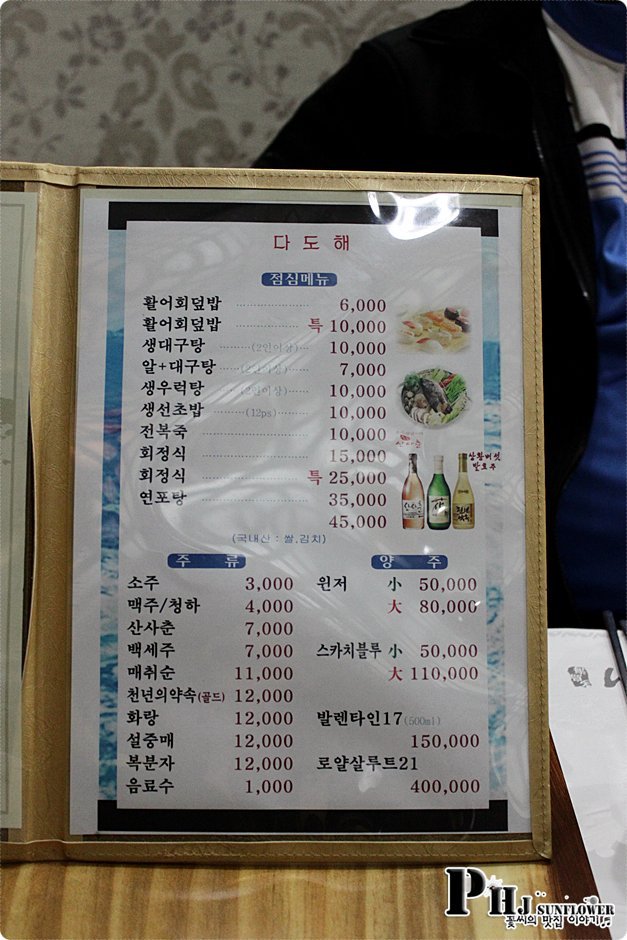 다도해
점심메뉴
활어회덮밥 6,000
활어회덮밥 특 10,000
생대구탕 (2인이상) 10,000
알+대구탕 (2인이상) 7,000
생우럭탕 (2인이상) 10,000
생선초밥 (12ps) 10,000
전복죽 10,000
회정식 15,000
회정식 특 25,000
연포탕 35,000
45,000
상황버섯
발효주
(국내산 : 쌀,김치)
주 류
소주 3,000
맥주/청하 4,000
산사춘 7,000
백세주 7,000
매취순 11,000
천년의약속(골드) 12,000
화랑 12,000
설중매 12,000
복분자 12,000
음료수 1,000
양 주
윈저 小 50,000
大 80,000
스카치블루 小 50,000
大 110,000
발렌타인17(500ml)
150,000
로얄살루트21
400,000
PHJ SUNFLOWER
꽃씨의 맛집 이야기